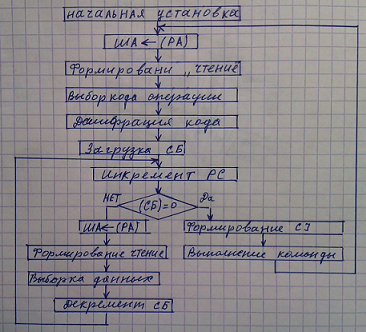 Начальная установка
ША ← (РА)
Формировани „чтение
Выбор кода операции
Дешифрация кода
Загрузка СБ
Инкремент РС
(СБ)=0
НЕТ
Да
ША ← (РА)
Формирование чтение
Выборка данных
Декремент СБ
Формирование
Выполнение команды